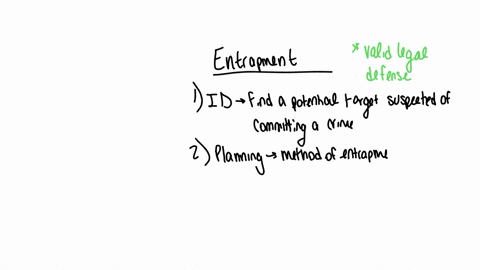 Entrapment
* valid legal
defense
1) ID → Find a potential target suspected of
committing a crime
2) Planning → method of entrapme